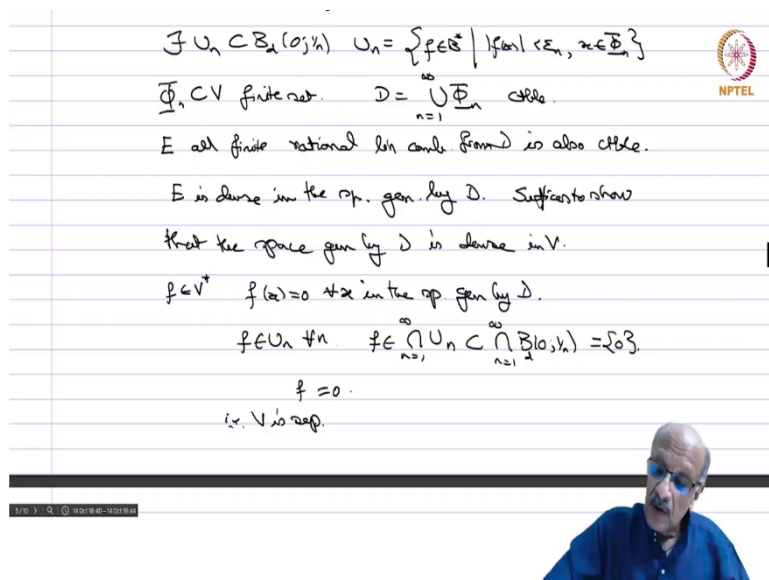 ∃ Uₙ ⊂ B_d(0; 1/n) Uₙ = {f ∈ B* | |f(x)| < εₙ, x ∈ Φₙ}
Φₙ ⊂ V finite set. D = ∪_{n=1}^{∞} Φₙ ctble.
E all finite rational lin comb. from D is also ctble.
E is dense in the sp. gen. by D. Suffices to show
that the space gen by D is dense in V.
f ∈ V* f(x) = 0 ∀x in the sp. gen by D.
f ∈ Uₙ ∀n. f ∈ ∩_{n=1}^{∞} Uₙ ⊂ ∩_{n=1}^{∞} B_d(0; 1/n) = {0}.
f = 0.
i.e. V is sep.
NPTEL
5/10 14 Oct 18:40 – 14 Oct 18:44